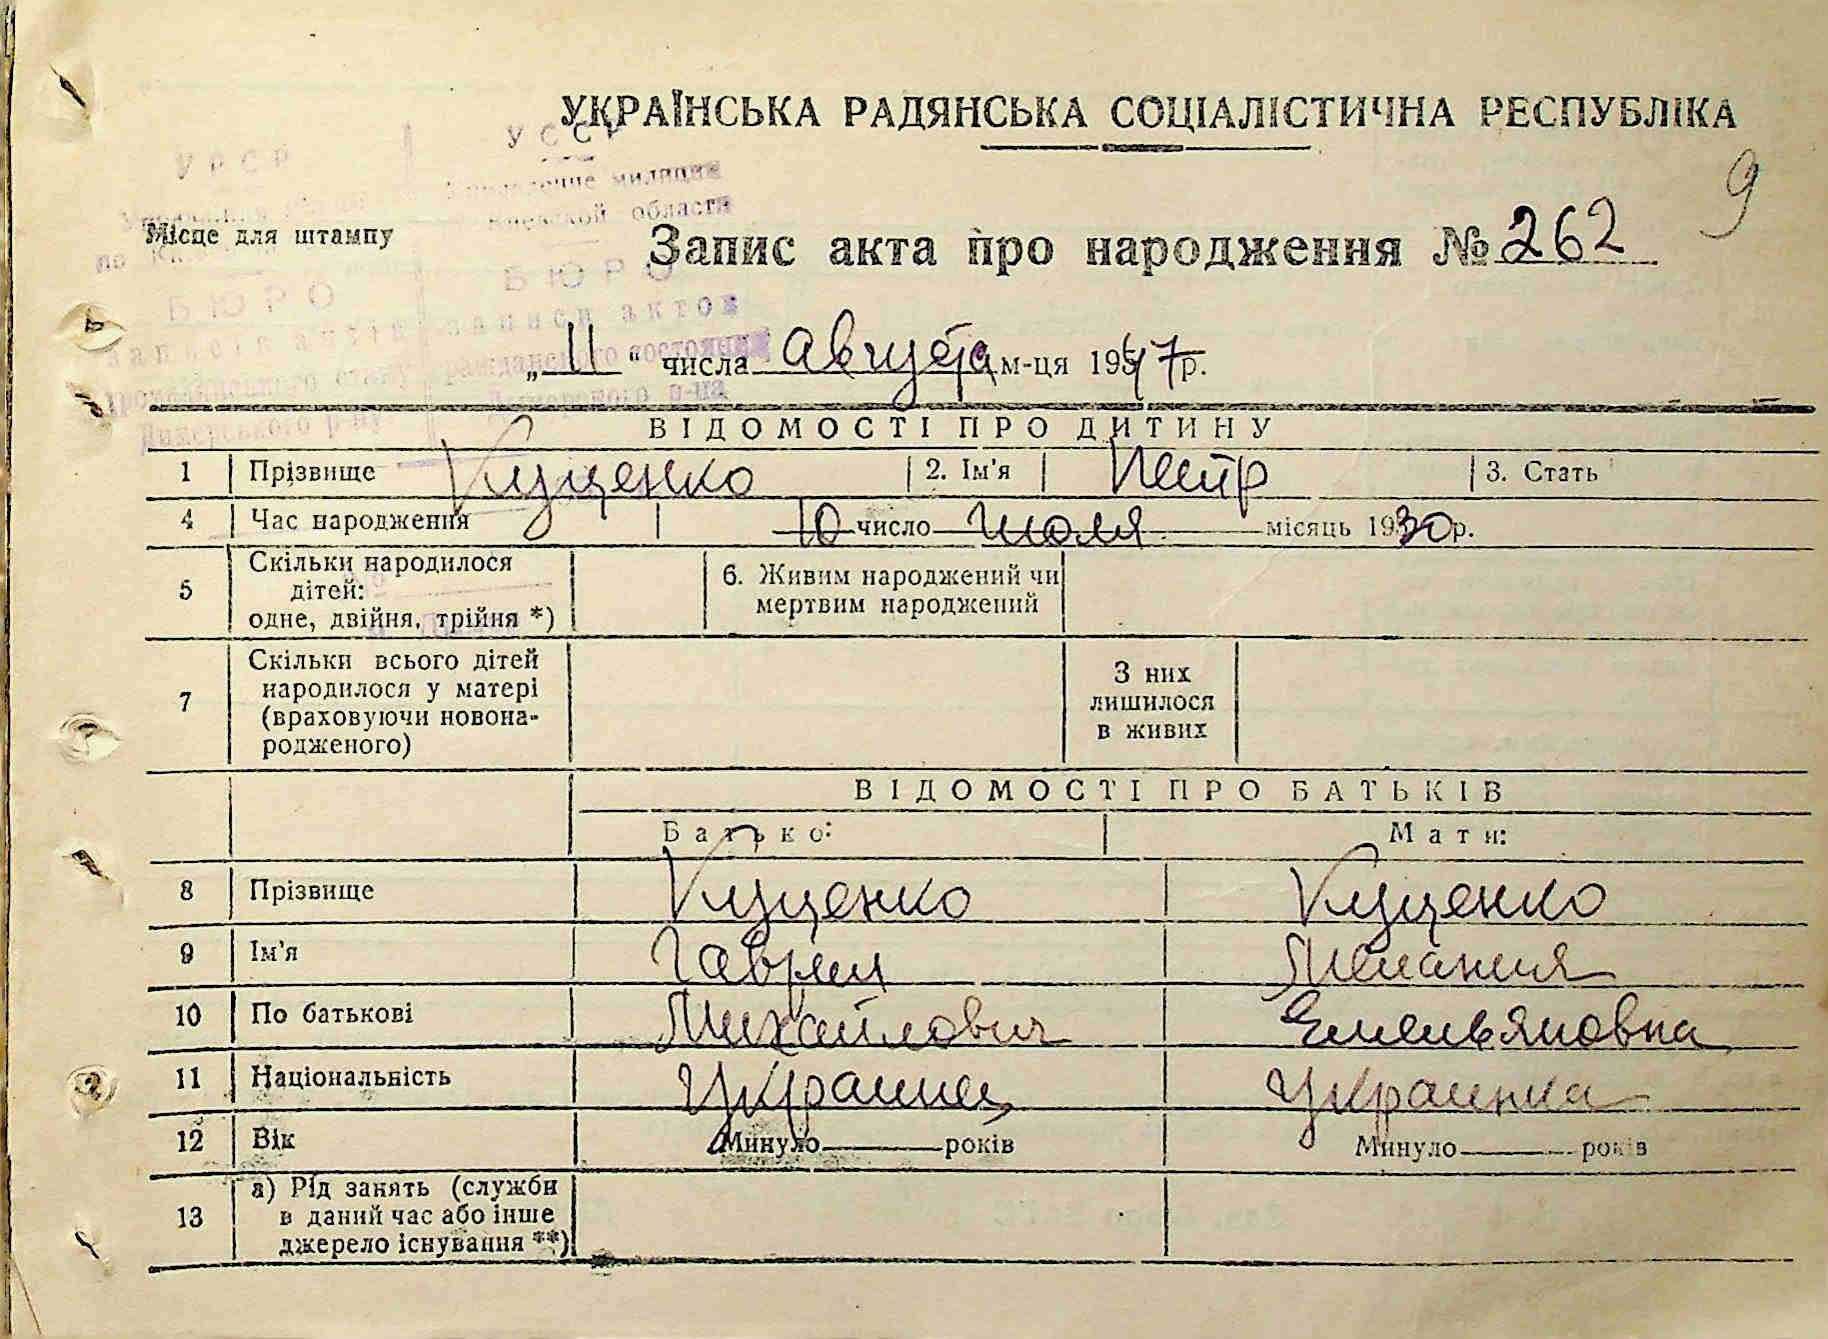 УКРАЇНСЬКА РАДЯНСЬКА СОЦІАЛІСТИЧНА РЕСПУБЛІКА
9
УРСР УССР
милиции
области
Місце для штампу
Запис акта про народження № 262
БЮРО БЮРО
записів актів записи актов
громадянського стану гражданского состояния
Димерського р-ну Дымерского р-на
„11“ числа Августа м-ця 1947 р.
ВІДОМОСТІ ПРО ДИТИНУ
1 Прізвище Куценко 2. Ім'я Петр 3. Стать
4 Час народження 10 число Июля місяць 1930 р.
5 Скільки народилося дітей: одне, двійня, трійня *) 6. Живим народжений чи мертвим народжений
7 Скільки всього дітей народилося у матері (враховуючи новонародженого) З них лишилося в живих
ВІДОМОСТІ ПРО БАТЬКІВ
Батько: Мати:
8 Прізвище Куценко Куценко
9 Ім'я Гаврил Мелания
10 По батькові Михайлович Емельяновна
11 Національність Украинец Украинка
12 Вік Минуло років Минуло років
13 а) Рід занять (служби в даний час або інше джерело існування **)